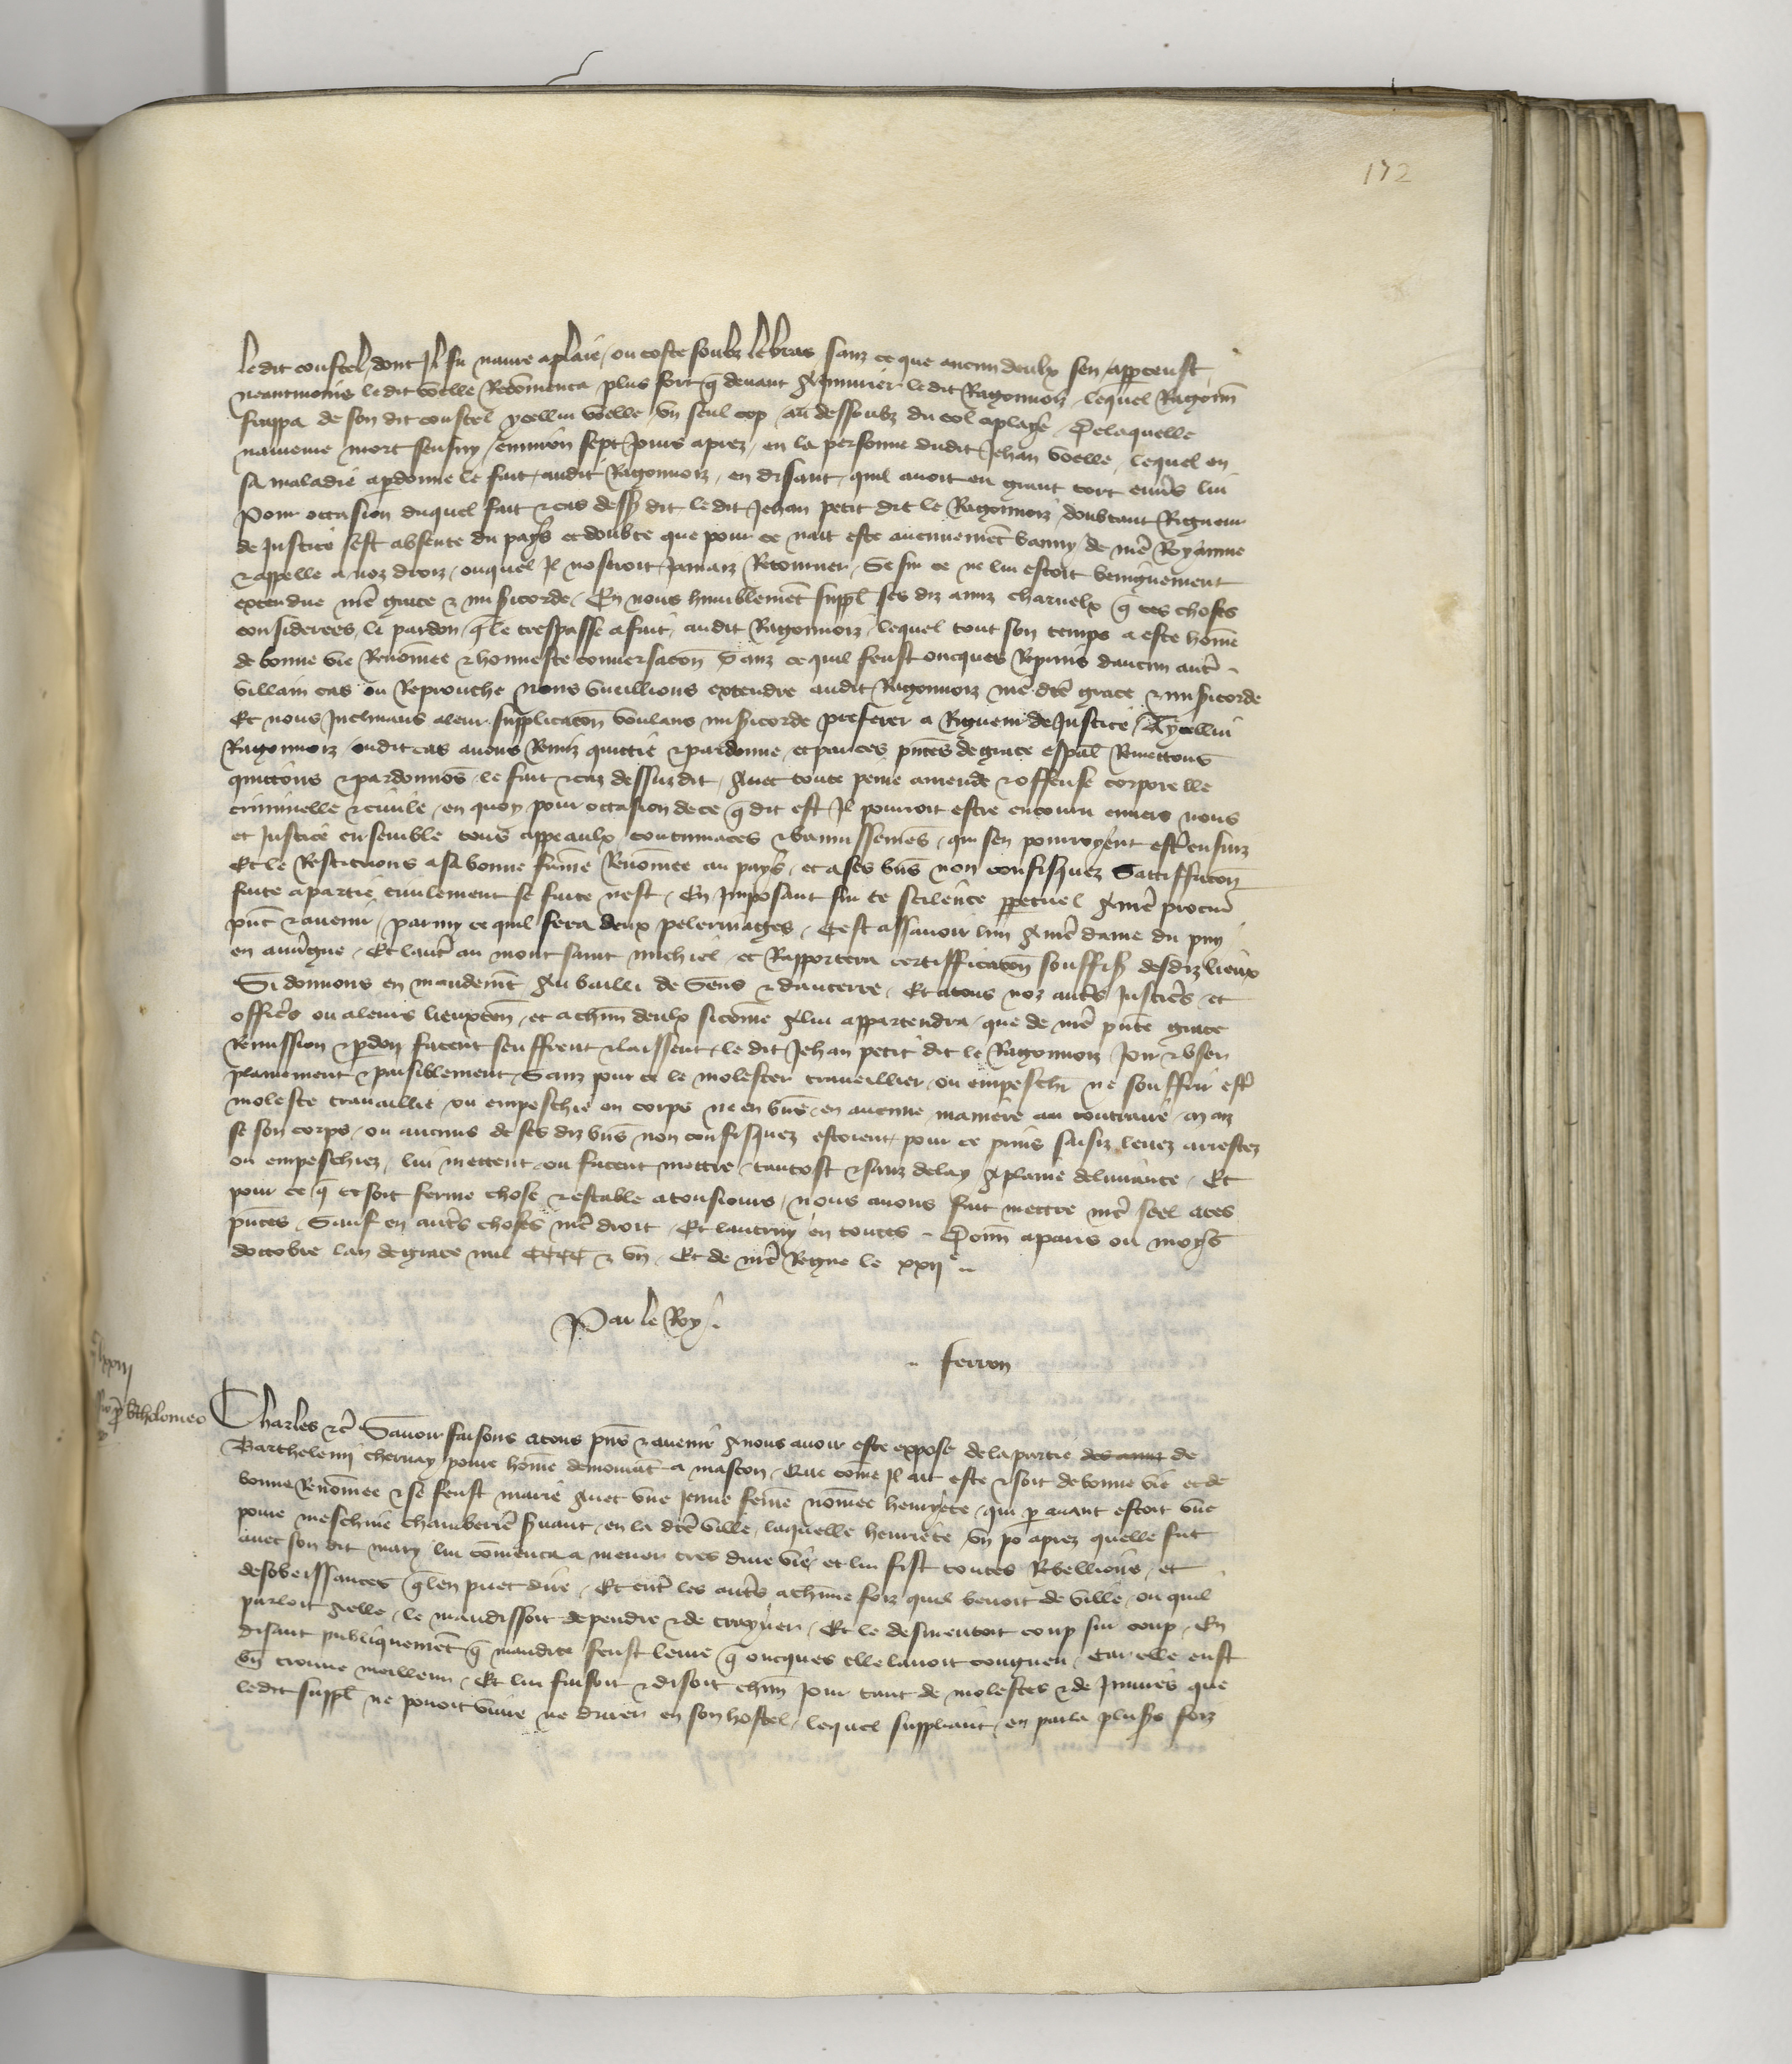 172
le dit coustel dont Jl fu navré a plaie ou costé soubz le bras sanz ce que aucun deulx sen apperceust
neantmoins le dit voelle Recomenca plus fort q̄ devant a Jnjurier le dit Ragonnoiz lequel Ragonn̄
frappa de son dit coustel ycellui voelle un seul cop au dessoubz du col a plaie De laquelle
navreure mort sensuy environ sept Jours aprez en la personne dudit Jehan voelle lequel en
sa maladie a p̄donné le fait audit Ragonnoiz en disant quil avoit eu grant tort env̄s lui
Pour occasion duquel fait et cas dess̄ dit le dit Jehan petit dit le Ragonnoiz doubtant Rigueur
de Justice sest absenté du pays et doubte que pour ce nait esté aucunemēt banny de nr̄e Royaume
et appellé a noz droiz ouquel Jl noseroit Jamaiz Retourner Se sur ce ne lui estoit benignement
extendue nr̄e grace et mis̄icorde En nous humblemēt suppl̄ ses diz amiz charnelx q̄ ces choses
considerees le pardon q̄ le trespassé a fait audit Ragonnoiz lequel tout son temps a esté hōme
de bonne vie Renōmee et honneste conversacōn sanz ce quil feust oncques Repris daucun autr̄e
villain cas ou Reprouche Nous vueillions extendre audit Ragonnoiz nr̄e dc̄e grace et mis̄icorde
Et nous Jnclinans a leur supplicacōn voulans mis̄icorde preferer a Rigueur de Justice A ycellui
Ragonnoiz oudit cas avons Remiz quittié et pardonné et par ces pn̄tes de grace esp̄al Remettons
quittons et pardonnōs le fait et caz dessuzdit avec toute peine amende et offense corporelle
criminelle et civile en quoy pour occasion de ce q̄ dit est Jl pourroit estre encouru envers nous
et Justice ensemble tous appeaulx contumaces et bannissemēs qui sen pourroyent estr̄ ensuiz
Et le Restituons a sa bonne fame Renōmee au pays et a ses bn̄s non confisquez Satiffacōn
faite a partie civilement se faite nest En Jmposant sur ce scilence ppetuel a nr̄e procur̄
pn̄t et avenir parmy ce quil fera deux pelerinages Cest assavoir lun a nr̄e dame du puy
en auv̄gne Et lautr̄ au mont saint michiel et Rapportera certifficacōn souffis̄ desdiz lieux
Si donnons en mandemēt au bailli de Sens et dancerre Et a tous noz autr̄s Justicīs et
officīs ou a leurs lieuxten̄ et a chūn deulx sicōme a lui appartendra que de nr̄e pn̄te grace
Remission et p̄don facent seuffrent et laissent le dit Jehan petit dit le Ragonnoiz Joir et user
plainement et paisiblement Sanz pour ce le molester traveillier ou empeschīer ne souffrir estr̄
molesté travaillié ou empeschié en corps ne en bn̄s en aucune maniere au contraire Mais
se son corps ou aucuns de ses diz bn̄s non confisquez estoient pour ce prins saisiz levez arrestez
ou empeschiez lui mettent ou facent mettre tantost et sanz delay a plaine delivrance Et
pour ce q̄ ce soit ferme chose et estable a tousiours Nous avons fait mettre nr̄e seel a ces
pn̄tes Sauf en autr̄s choses nr̄e droit Et lautruy en toutes Donn̄ a paris ou moys
doctobre lan de grace mil cccc et un Et de nr̄e Regne le xxij e
Par le Roy
ferron
p̄ Bartholomeo
Charles etc̄ Savoir faisons a tous pn̄s et avenir a nous avoir esté exposé de la partie des amiz de
Barthelemi chervay povre hōme demourāt a mascon Que cōme Jl ait esté et soit de bonne vie et de
bonne Renōmee et se feust marié avec une Jeune fēme nōmee henryete qui p̄ avant estoit une
povre meschine chamberier̄e s̄vant en la dc̄e ville laquelle henriete un po aprez quelle fut
avec son dit mary lui cōmenca a mener tres dure vie et lui fist toutes Rebellions et
desobeissances q̄ len puet dire Et entr̄ les autr̄s a chūne foiz quil venoit de ville ou quil
parloit a elle le maudissoit de pendre et de trayner Et le desmentoit coup sur coup En
disant publiquemēt q̄ maudite feust leure q̄ oncques elle lavoit congneu Car elle eust
bn̄ trouvé meilleur Et lui faisoit et disoit chūn Jour tant de molestes et de Jniures que
ledit suppl̄ ne povoit vivre ne durer en son hostel lequel suppliant en parla plus̄s foiz